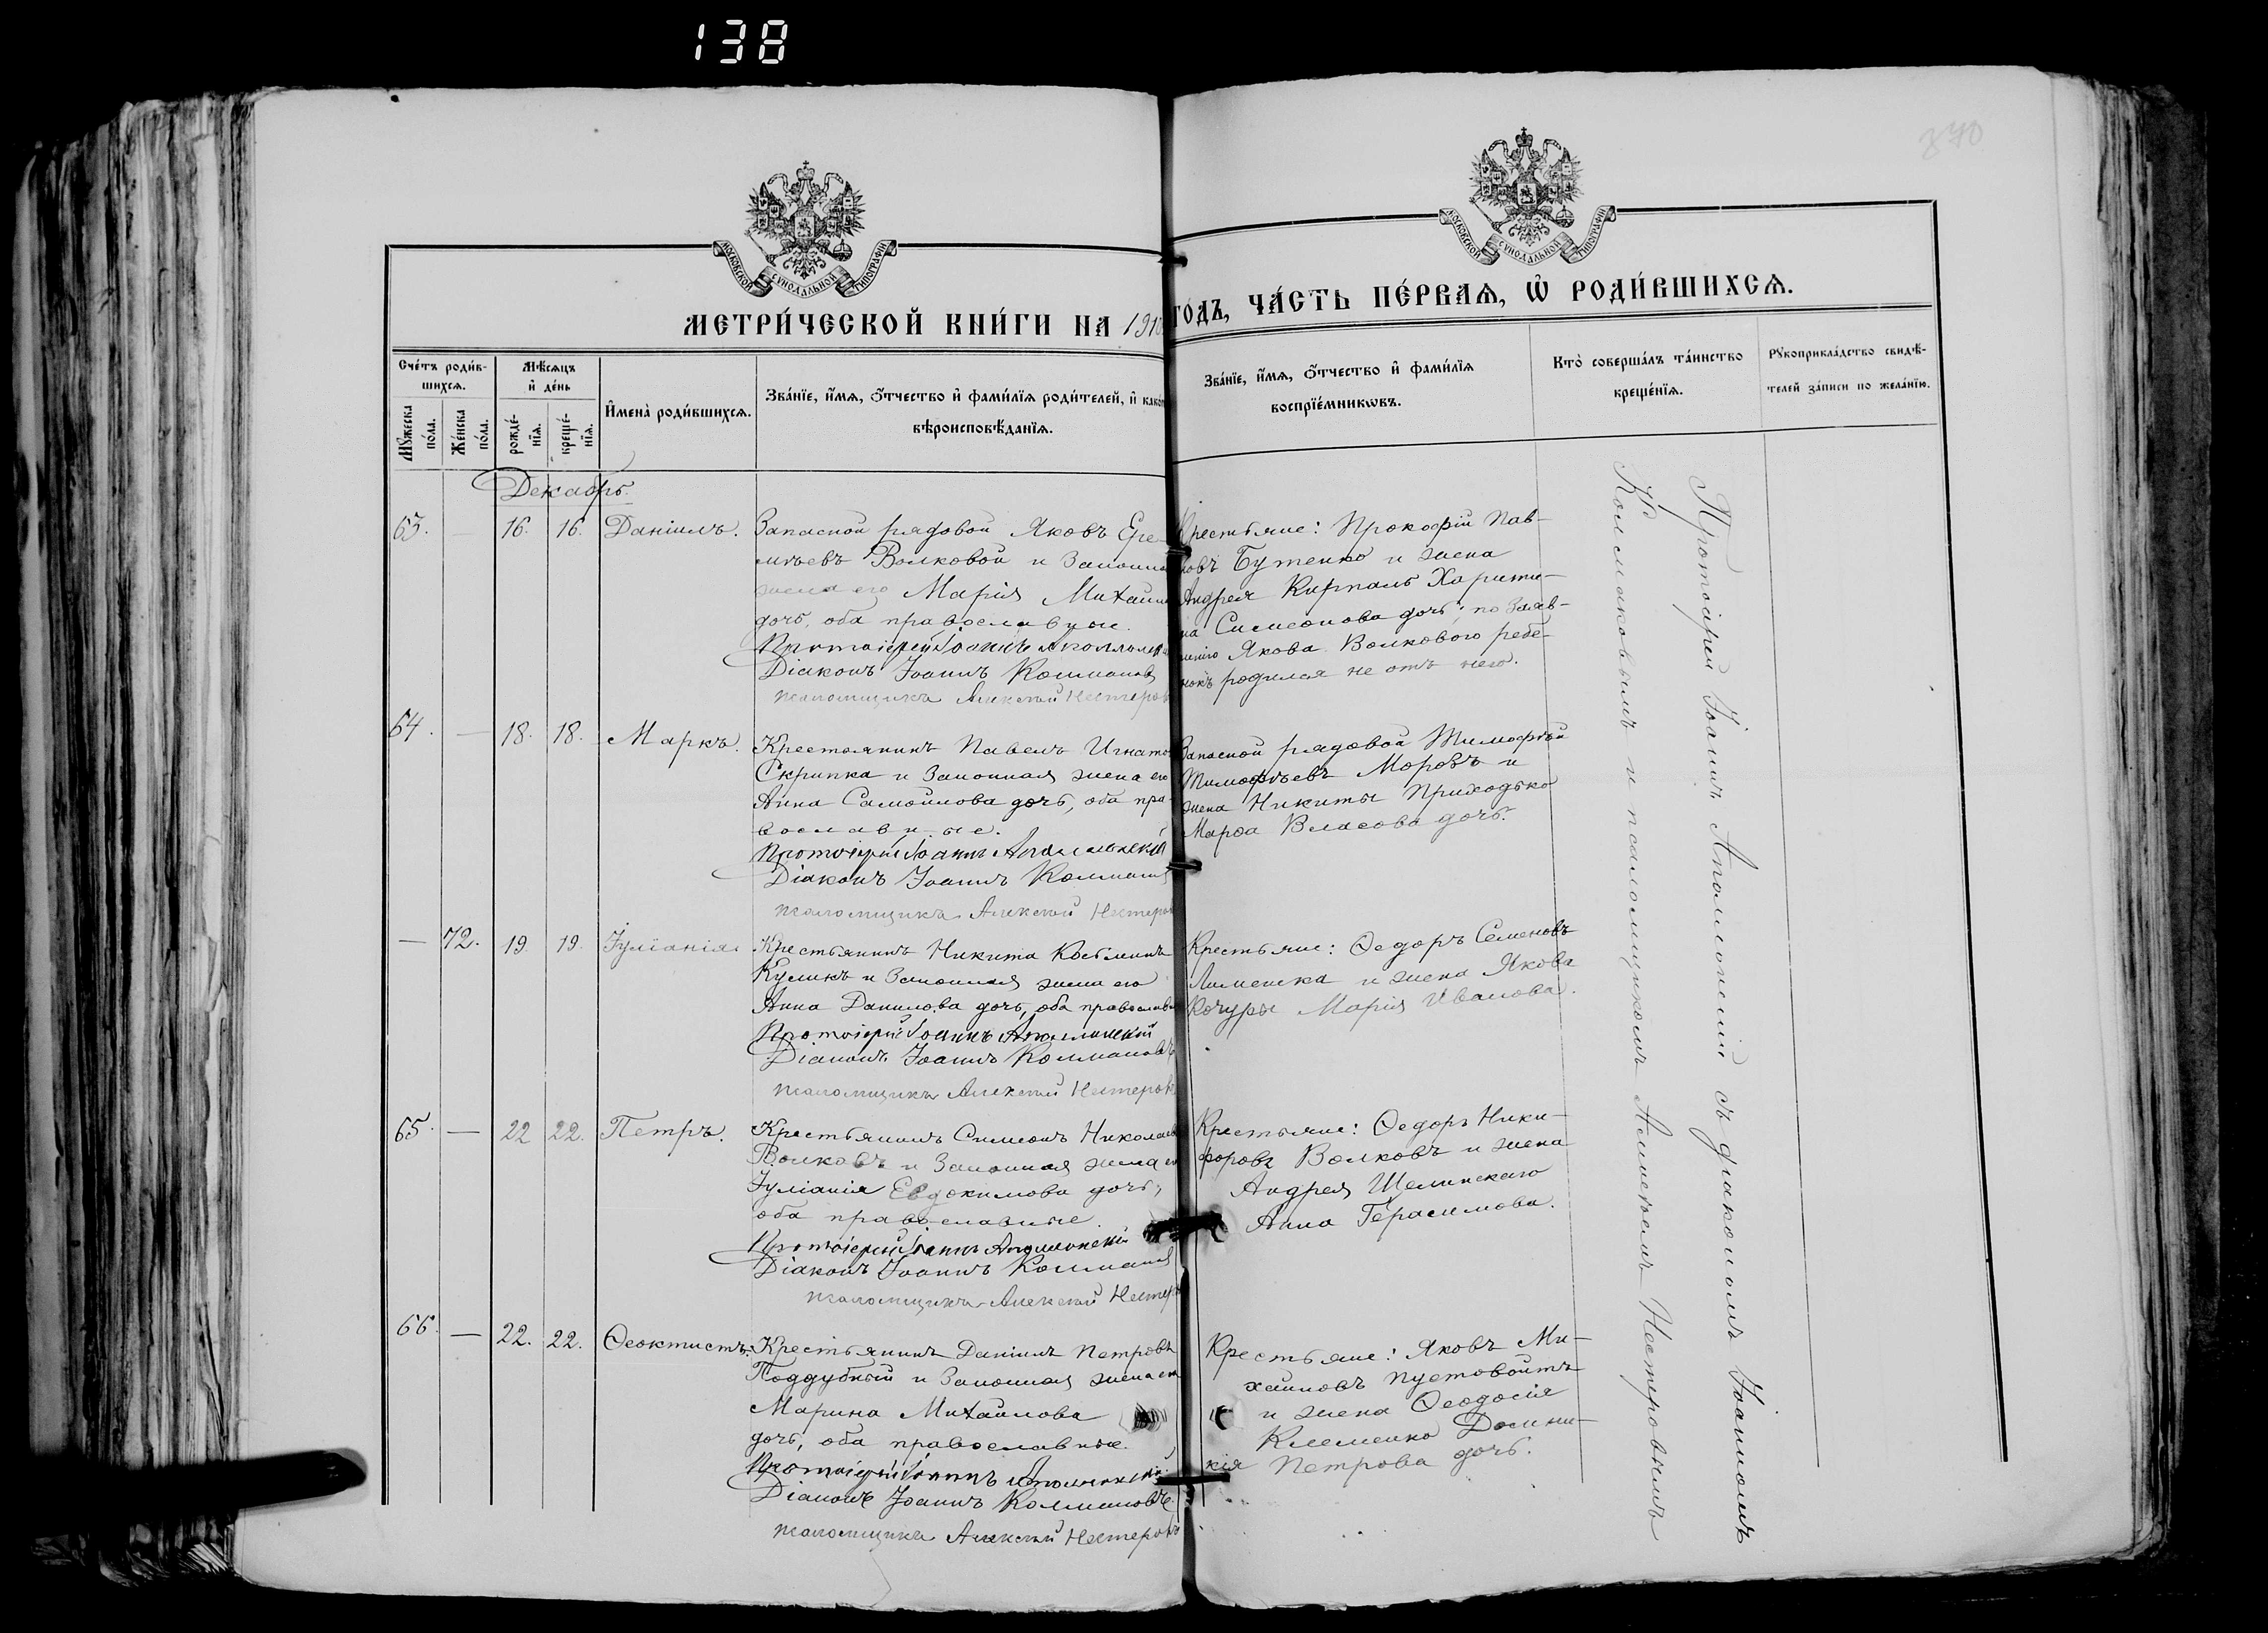 138
МОСКОВСКОЙ СУНОДАЛЬНОЙ ТИПОГРАФІИ
МОСКОВСКОЙ СУНОДАЛЬНОЙ ТИПОГРАФІИ
МЕТРИ́ЧЕСКОЙ КНИ́ГИ НА 1910 ГОДЪ, ЧА́СТЬ ПЕ́РВАѦ, Ѡ РОДИ́ВШИХСѦ.
Сче́тъ роди́в-
шихсѧ.
Мꙋжеска по́ла.
Же́нска по́ла.
Мѣ́сѧцъ и҆ де́нь
рожде́-
нїѧ.
креще́-
нїѧ.
И҆мена̀ роди́вшихсѧ.
Зва́нїе, и҆́мѧ, ѻ҆́тчество и҆ фами́лїѧ роди́телей, и҆ како́
вѣроисповѣ́данїѧ.
Зва́нїе, и҆́мѧ, ѻ҆́тчество и҆ фами́лїѧ
воспрїе́мникѡвъ.
Кто̀ соверша́лъ та́инство
креще́нїѧ.
Рꙋкоприкла́дство свидѣ́-
телей за́писи по жела́нїю.
Декабрь
63. — 16. 16. Даніилъ.
Запасной рядовой Яковъ Ере-
мѣевъ Волковой и законная
жена его Марія Михаил
дочь, оба православные.
Протоіерей Іоаннъ Аполлонскій
Діаконъ Іоаннъ Колмаковъ
псаломщикъ Алексѣй Нестеров
Крестьяне: Прокофій Пав-
ловъ Бутенко и жена
Андрея Кирпаль Харити-
на Симеонова дочь; по заяв-
ленію Якова Волкового ребе-
нокъ родился не отъ него.
64. — 18. 18. Маркъ.
Крестьянинъ Павелъ Игнатов
Скрипка и законная жена его
Анна Самойлова дочь, оба пра-
вославные.
Протоіерей Іоаннъ Аполлонскій
Діаконъ Іоаннъ Колмаков
псаломщикъ Алексѣй Нестеров
Запасной рядовой Тимофѣй
Тимофѣевъ Моровъ и
жена Никиты Приходько
Марѳа Власова дочь.
— 72. 19. 19. Іуліанія.
Крестьянинъ Никита Косьминъ
Куликъ и законная жена его
Анна Данилова дочь, оба православн
Протоіерей Іоаннъ Аполлонскій
Діаконъ Іоаннъ Колмаковъ
псаломщикъ Алексѣй Нестеровъ
Крестьяне: Ѳедоръ Семеновъ
и жена Якова
Кочуры Марія Иванова.
65. — 22 22. Петръ.
Крестьянинъ Симеонъ Николаев
Волковъ и законная жена его
Іуліанія Евдокимова дочь,
оба православные.
Протоіерей Іоаннъ Аполлонскій
Діаконъ Іоаннъ Колмаков
псаломщикъ Алексѣй Нестеров
Крестьяне: Ѳедоръ Ники-
форовъ Волковъ и жена
Андрея
Анна Герасимова.
66. — 22. 22. Ѳеоктистъ.
Крестьянинъ Даніилъ Петровъ
Поддубный и законная жена его
Марина Михаилова
дочь, оба православные.
Протоіерей Іоаннъ Аполлонскій
Діаконъ Іоаннъ Колмаковъ
псаломщикъ Алексѣй Нестеровъ
Крестьяне: Яковъ Ми-
хаиловъ Пустовойтъ
и жена Ѳеодосія
Клеменко Домни-
кія Петрова дочь.
Протоіерей Іоаннъ Аполлонскій съ діакономъ Іоанномъ
Колмаковымъ и псаломщикомъ Алексѣемъ Нестеровымъ